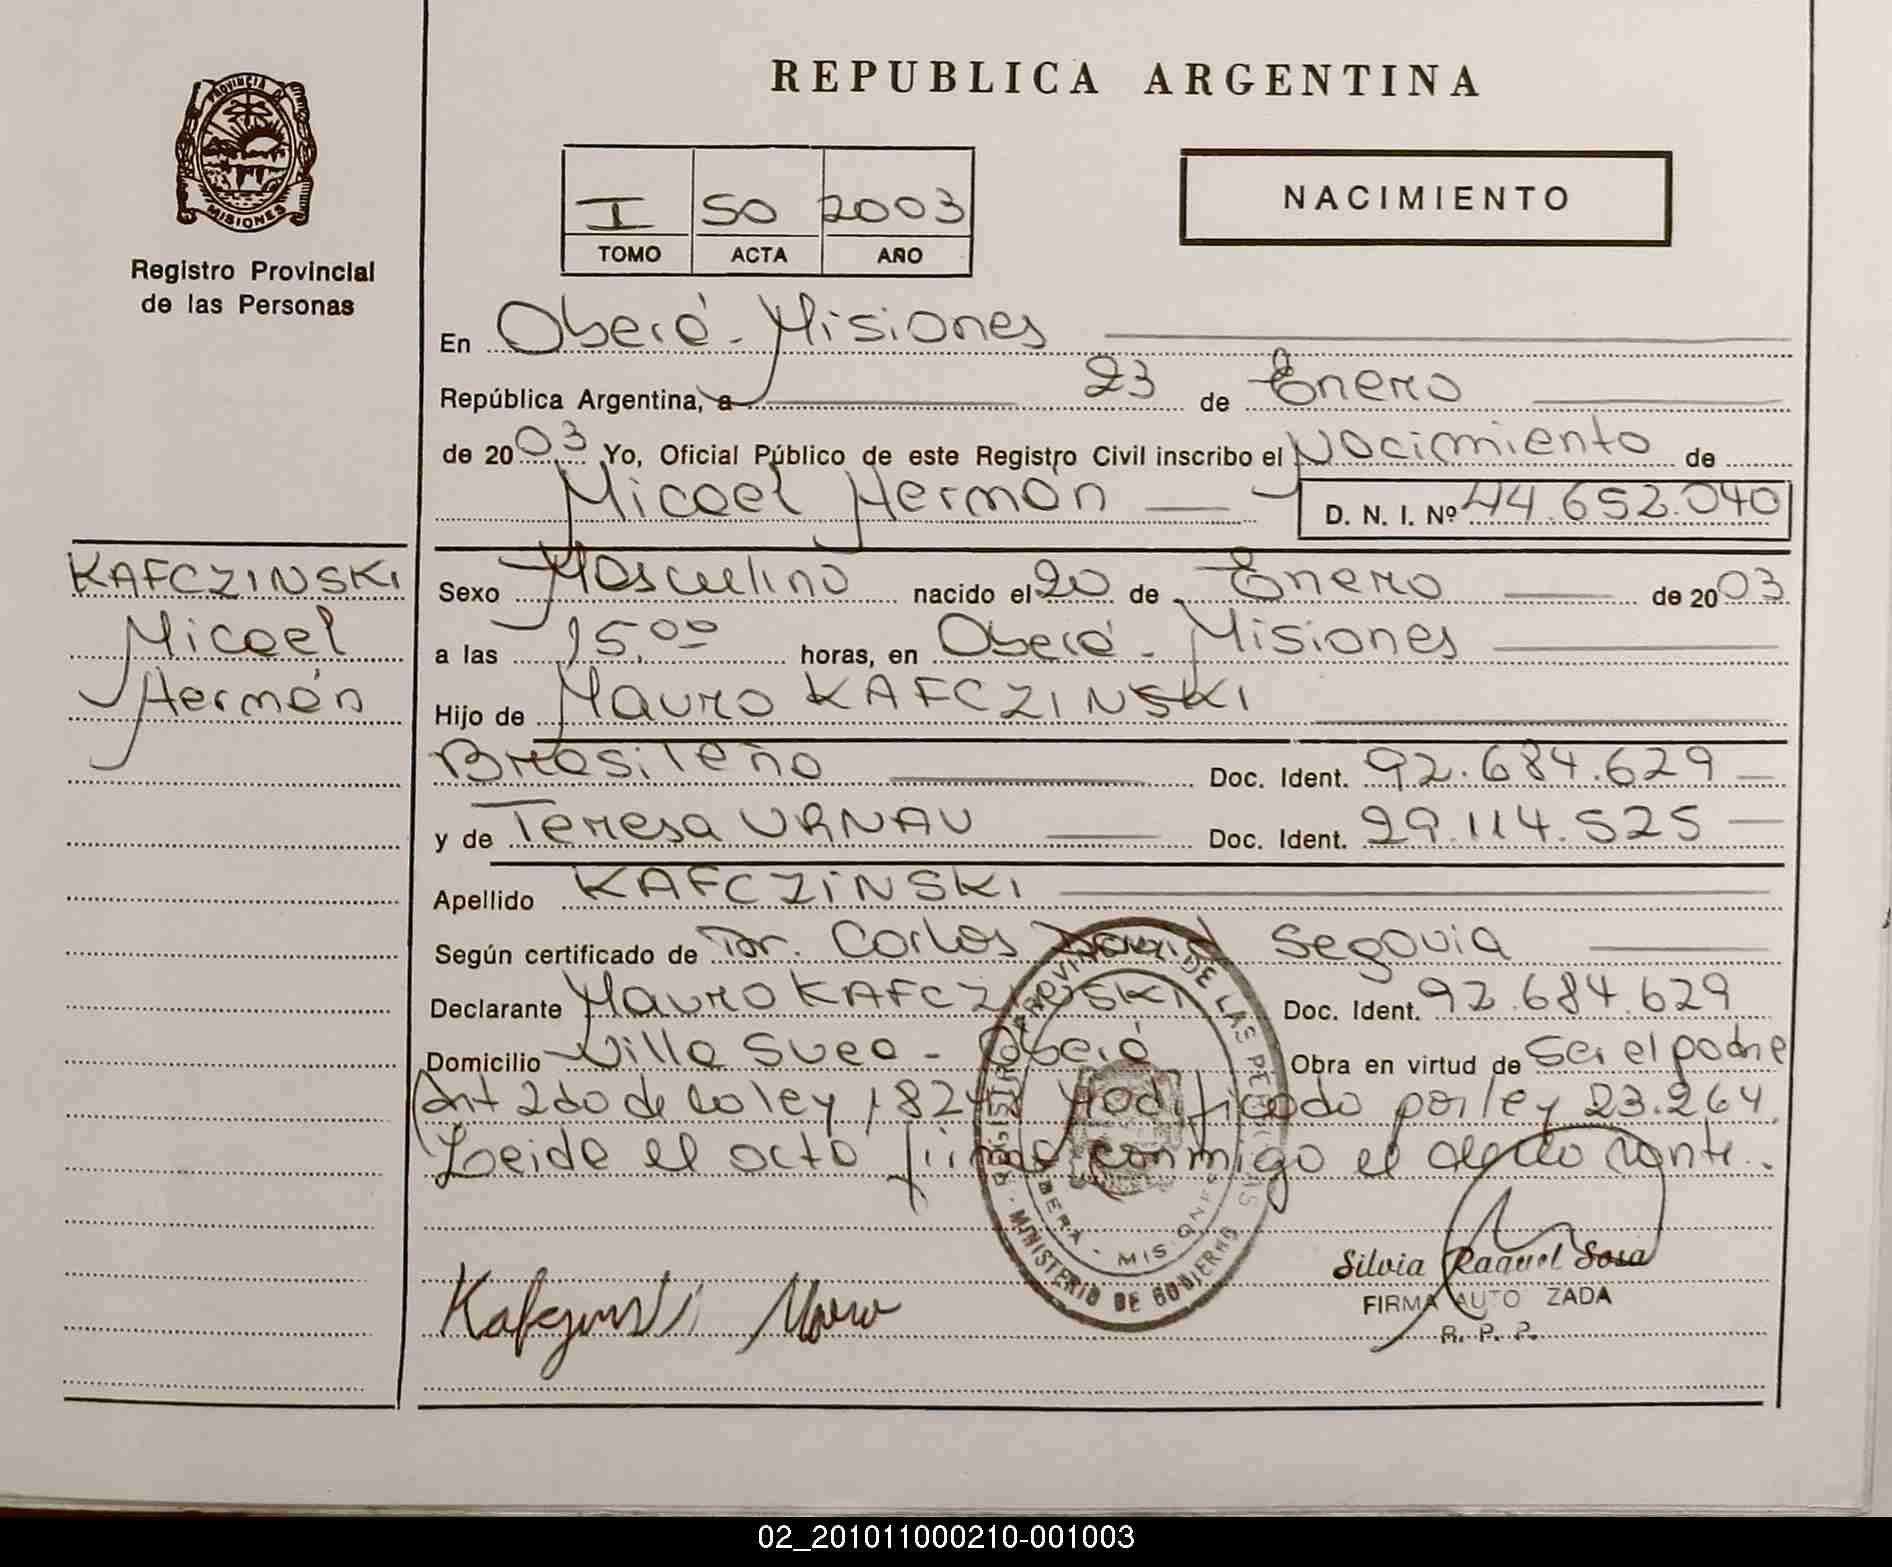 PROVINCIA DE
MISIONES
Registro Provincial
de las Personas
REPUBLICA ARGENTINA
I 50 2003
TOMO ACTA AÑO
NACIMIENTO
En Oberá - Misiones
República Argentina, a 23 de Enero
de 2003 Yo, Oficial Público de este Registro Civil inscribo el Nacimiento de
Micael Hernán
D. N. I. Nº 44.652.040
KAFCZINSKI
Micael
Hernán
Sexo Masculino nacido el 20 de Enero de 2003
a las 15,00 horas, en Oberá - Misiones
Hijo de Mauro KAFCZINSKI
Brasileño Doc. Ident. 92.684.629
y de Teresa URNAU Doc. Ident. 29.114.525
Apellido KAFCZINSKI
Según certificado de Dr. Carlos David Segovia
Declarante Mauro KAFCZINSKI Doc. Ident. 92.684.629
Domicilio Villa Svea - Oberá Obra en virtud de Ser el padre
Art 2do de la ley 18248 Modificado por ley 23.264.
Leida el acta firma conmigo el declarante.
REGISTRO PROVINCIAL DE LAS PERSONAS
OBERA - MISIONES
MINISTERIO DE GOBIERNO
Kafczinski Mauro
Silvia Raquel Sosa
FIRMA AUTO ZADA
R. P. P.
02_201011000210-001003